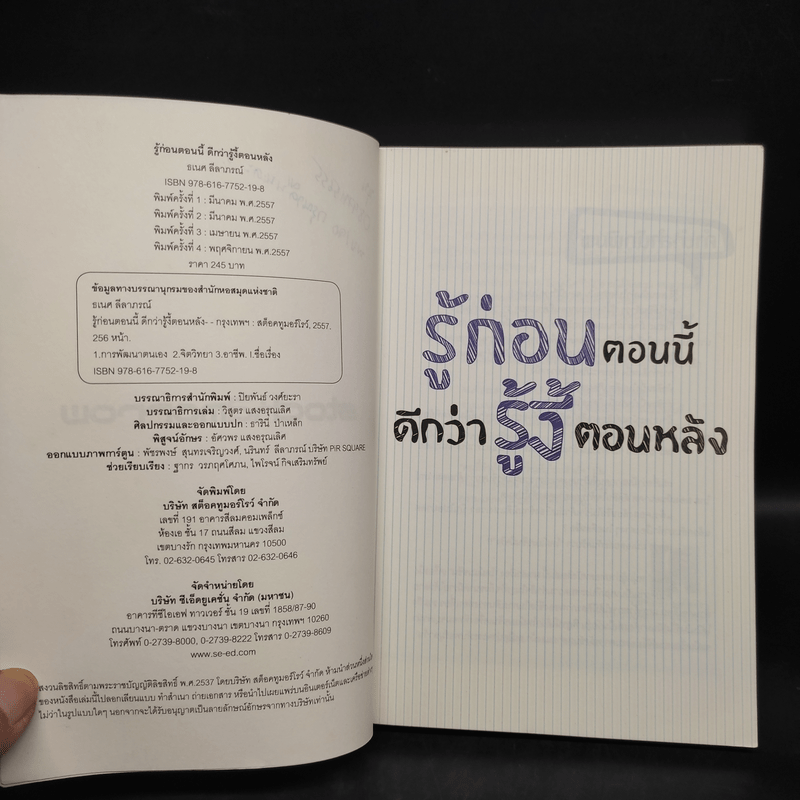 รู้ก่อนตอนนี้ ดีกว่ารู้งี้ตอนหลัง
ธเนศ ลีลาภรณ์
ISBN 978-616-7752-19-8
พิมพ์ครั้งที่ 1 : มีนาคม พ.ศ.2557
พิมพ์ครั้งที่ 2 : มีนาคม พ.ศ.2557
พิมพ์ครั้งที่ 3 : เมษายน พ.ศ.2557
พิมพ์ครั้งที่ 4 : พฤศจิกายน พ.ศ.2557
ราคา 245 บาท
ข้อมูลทางบรรณานุกรมของสำนักหอสมุดแห่งชาติ
ธเนศ ลีลาภรณ์
รู้ก่อนตอนนี้ ดีกว่ารู้งี้ตอนหลัง- - กรุงเทพฯ : สต็อคทูมอร์โรว์, 2557.
256 หน้า.
1.การพัฒนาตนเอง 2.จิตวิทยา 3.อาชีพ. I.ชื่อเรื่อง
ISBN 978-616-7752-19-8
บรรณาธิการสำนักพิมพ์ : ปิยพันธ์ วงศ์ยะรา
บรรณาธิการเล่ม : วิสูตร แสงอรุณเลิศ
ศิลปกรรมและออกแบบปก : ธารินี ป่าเหล็ก
พิสูจน์อักษร : อัศวพร แสงอรุณเลิศ
ออกแบบภาพการ์ตูน : พัชรพงษ์ สุนทรเจริญวงศ์, นรินทร์ ลีลาภรณ์ บริษัท PiR SQUARE
ช่วยเรียบเรียง : ฐากร วรภฤศโศภน, ไพโรจน์ กิจเสริมทรัพย์
จัดพิมพ์โดย
บริษัท สต็อคทูมอร์โรว์ จำกัด
เลขที่ 191 อาคารสีลมคอมเพล็กซ์
ห้องเอ ชั้น 17 ถนนสีลม แขวงสีลม
เขตบางรัก กรุงเทพมหานคร 10500
โทร. 02-632-0645 โทรสาร 02-632-0646
จัดจำหน่ายโดย
บริษัท ซีเอ็ดยูเคชั่น จำกัด (มหาชน)
อาคารทีซีไอเอฟ ทาวเวอร์ ชั้น 19 เลขที่ 1858/87-90
ถนนบางนา-ตราด แขวงบางนา เขตบางนา กรุงเทพฯ 10260
โทรศัพท์ 0-2739-8000, 0-2739-8222 โทรสาร 0-2739-8609
www.se-ed.com
สงวนลิขสิทธิ์ตามพระราชบัญญัติลิขสิทธิ์ พ.ศ.2537 โดยบริษัท สต็อคทูมอร์โรว์ จำกัด ห้ามนำส่วนหนึ่งส่วนใด
ของหนังสือเล่มนี้ไปลอกเลียนแบบ ทำสำเนา ถ่ายเอกสาร หรือนำไปเผยแพร่บนอินเตอร์เน็ตและเครือข่ายต่างๆ
ไม่ว่าในรูปแบบใดๆ นอกจากจะได้รับอนุญาตเป็นลายลักษณ์อักษรจากทางบริษัทเท่านั้น
รู้ก่อนตอนนี้
ดีกว่ารู้งี้ตอนหลัง